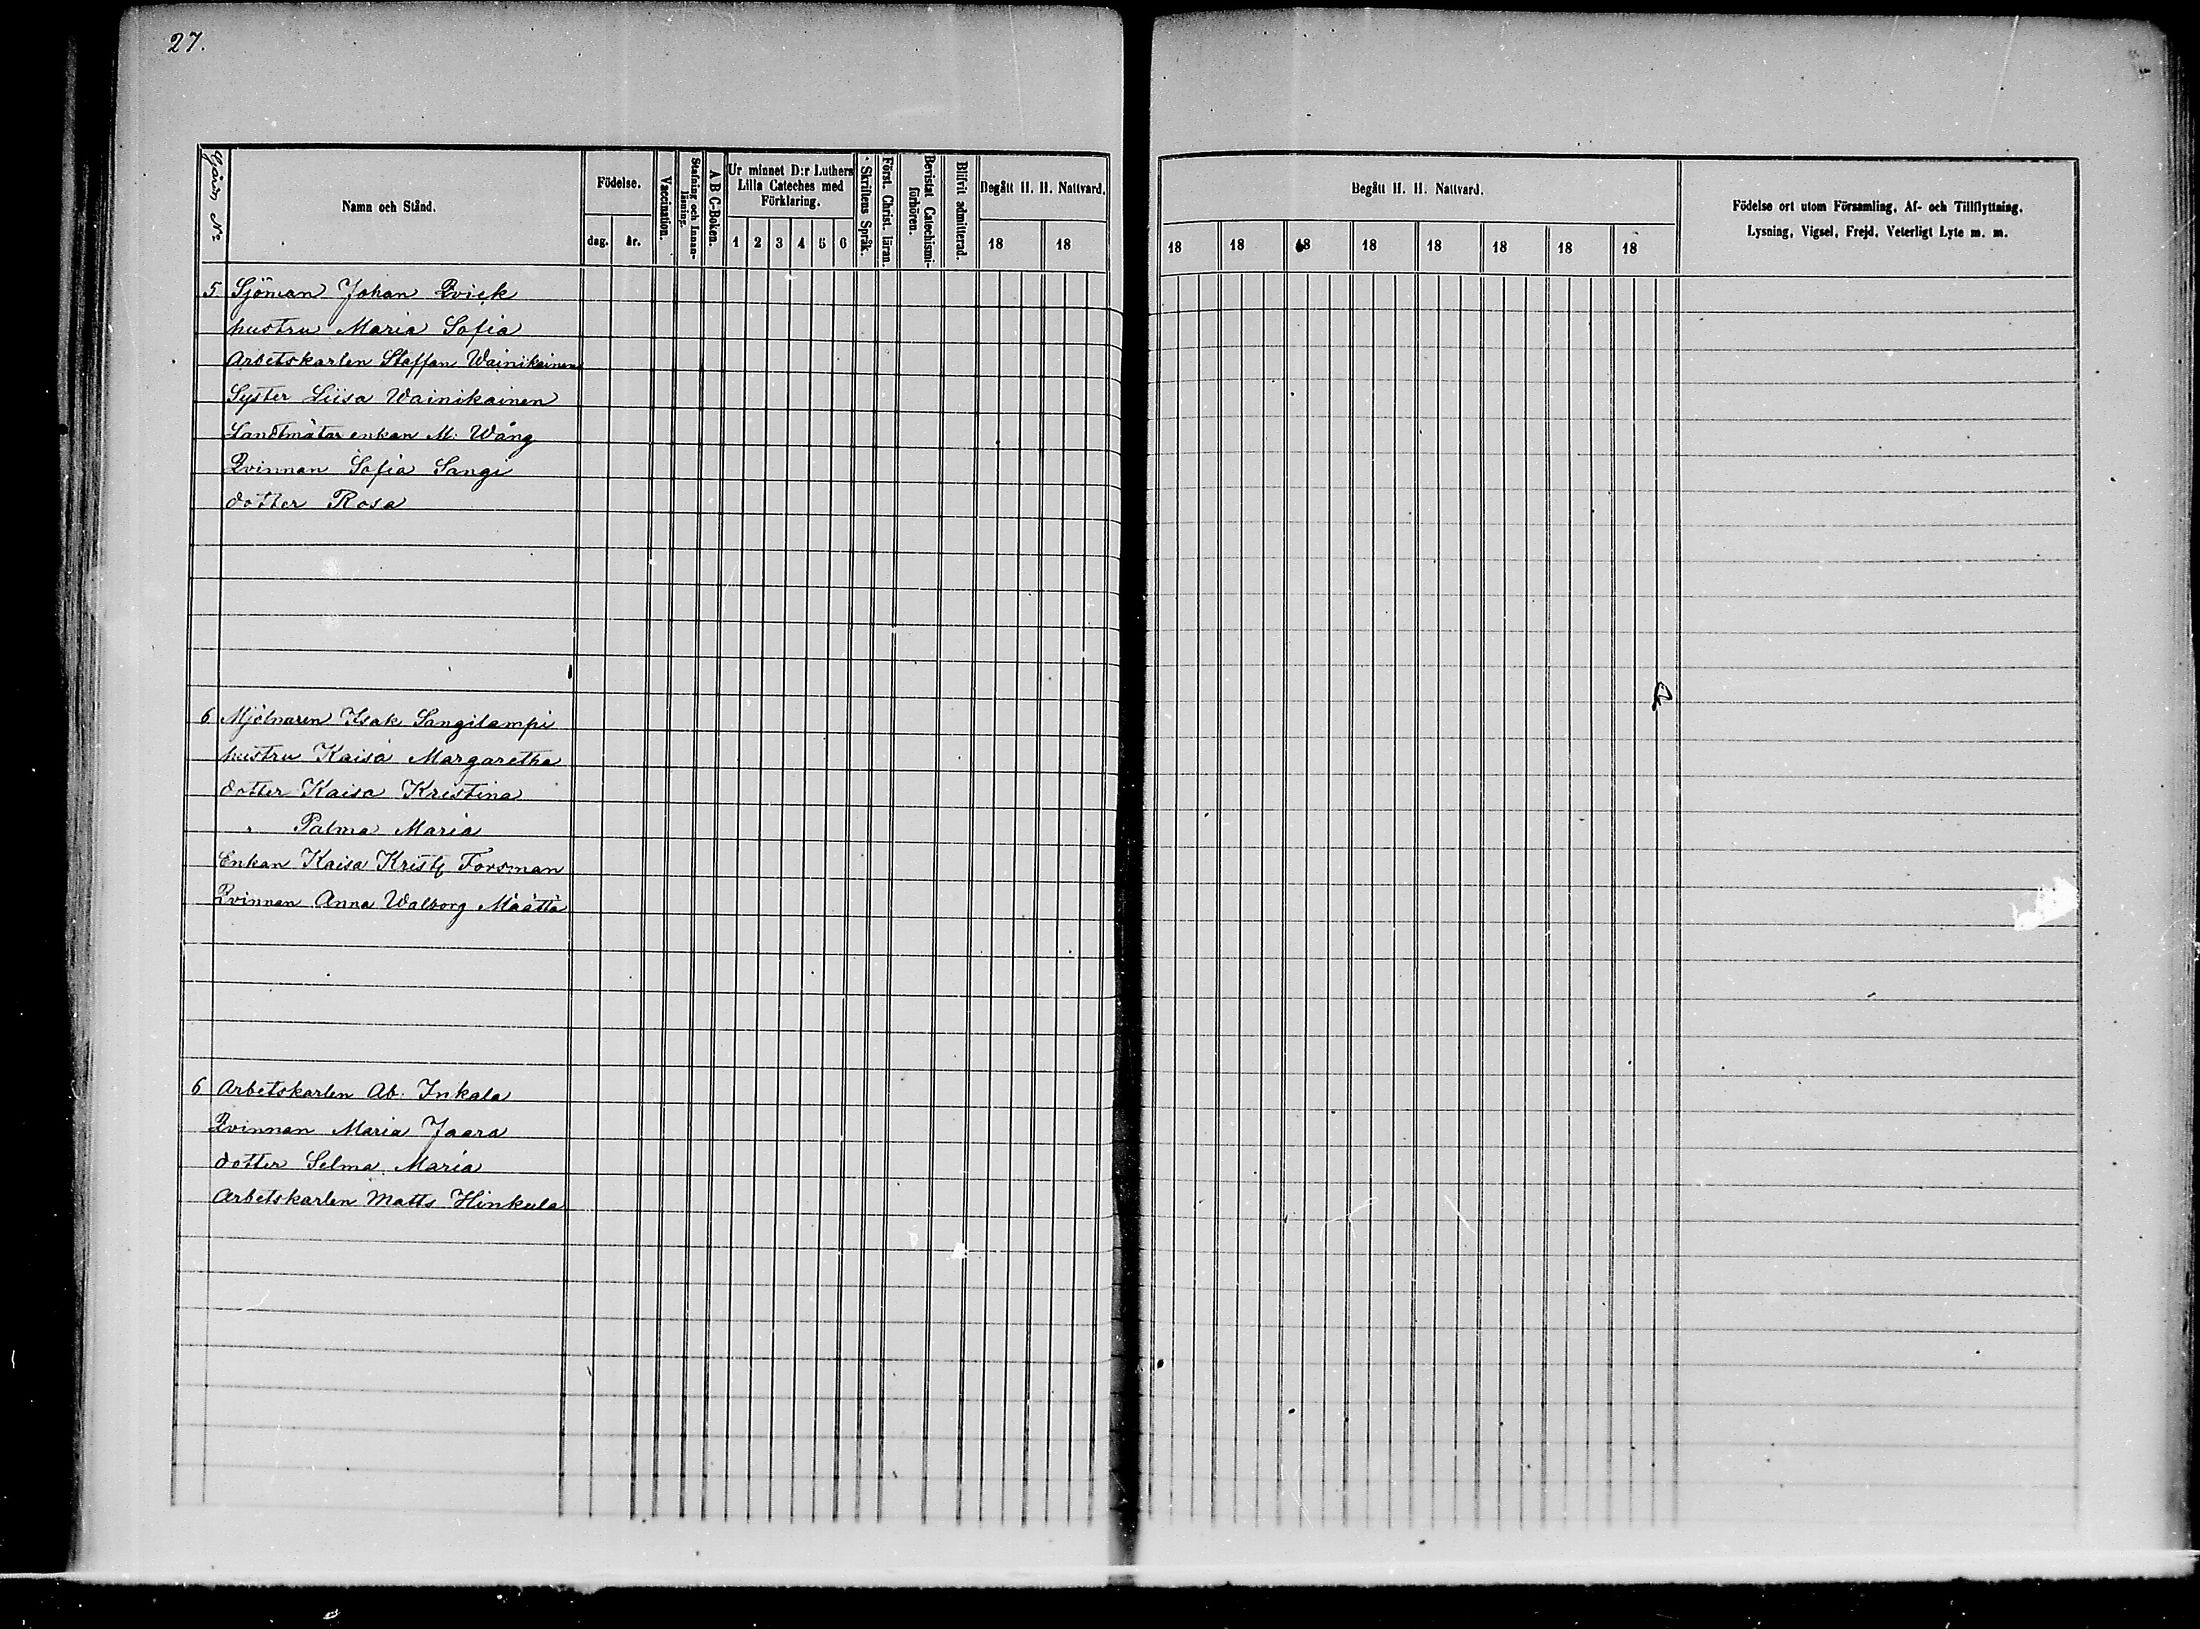 27.
Gård N:o
Namn och Stånd.
Födelse.
dag.
år.
Vaccination.
Stafning och Innan-läsning.
A B C-Boken.
Ur minnet D:r Luthers
Lilla Cateches med
Förklaring.
1 2 3 4 5 6
Skriftens Språk.
Först. Christ. läran.
Bevistat Catechismi-förhören.
Blifvit admitterad.
Begått H. H. Nattvard.
18 18
Begått H. H. Nattvard.
18 18 18 18 18 18 18 18
Födelse ort utom Församling, Af- och Tillflyttning,
Lysning, Vigsel, Frejd, Veterligt Lyte m. m.
5 Sjöman Johan Qvick
hustru Maria Sofia
Arbetskarlen Staffan Wainikainen
Syster Liisa Wainikainen
Landtmätar enkan M. Wång
Qvinnan Sofia Sangi
dotter Rosa
6 Mjölnaren Isak Sangilampi
hustru Kaisa Margaretha
dotter Kaisa Kristina
" Palma Maria
Enkan Kaisa Krist. Forsman
Qvinnan Anna Walborg Määttä
6 Arbetskarlen Ab. Inkala
Qvinnan Maria Jaara
dotter Selma Maria
Arbetskarlen Matts Hinkula